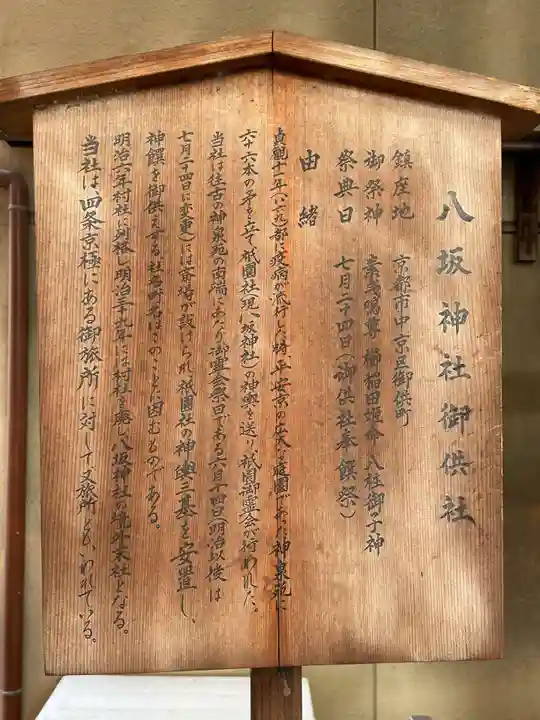 八坂神社御供社
鎮座地　京都市中京区御供町
御祭神　素戔嗚尊　櫛稲田姫命　八柱御子神
祭典日　七月二十四日（御供社奉饌祭）
由緒
貞観十一年（八六九）都に疫病が流行した時、平安京の広大な庭園であった神泉苑に
六十六本の矛を立て祇園社（現八坂神社）の神輿を送り、祇園御霊会が行われた。
当社は往古の神泉苑の南端にあたり御霊会祭日である六月十四日（明治以後は
七月二十四日に変更）には斎場が設けられ、祇園社の神輿三基を安置し、
神饌を御供えする。社名町名はこのことに因むものである。
明治六年村社に列格し明治三十九年には村社を廃し八坂神社の境外末社となる。
当社は、四条京極にある御旅所に対して又旅所とも、いわれている。